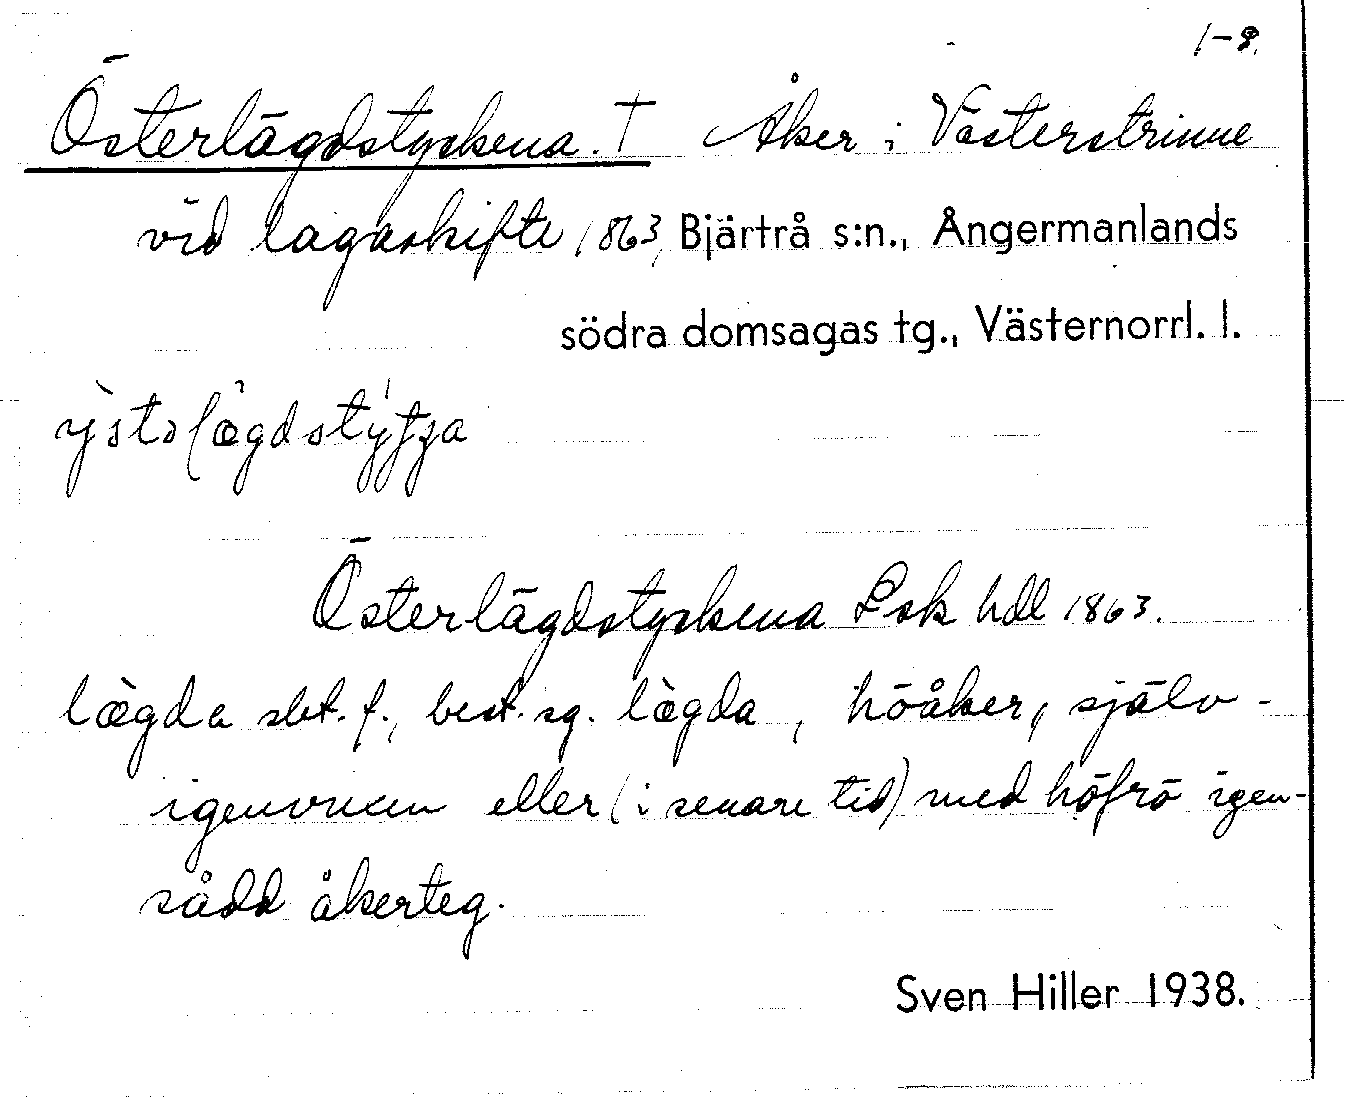 1-8.
Österlägdstyckena. † Åker i Västerstrinne
vid lagaskifte 1863, Bjärtrå s:n., Ångermanlands
södra domsagas tg., Västernorrl. l.
Österlägdstyckena Lsk hdl 1863.
lægda sbt. f., best. sg. lægda, höåker, själv-
igenvuxen eller (i senare tid) med höfrö igen-
sådd åkerteg.
Sven Hiller 1938.